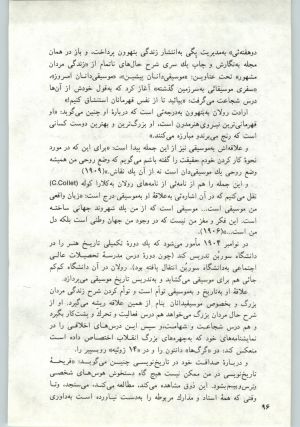 دوهفته‌ئی» به‌مدیریت پگی به‌انتشار زندگی بتهوون پرداخت، و باز در همان
مجله به‌نگارش و چاپ یك سری شرح حال‌های ناتمام از «زندگی مردان
مشهور» تحت عناوین: «موسیقی‌دانان پیشین»، «موسیقی‌دانان امروز»،
«سفری موسیقائی به‌سرزمین گذشته» آغاز کرد که به‌قول خودش از آن‌ها
درس شجاعت می‌گرفت: «بیائید تا از نفس قهرمانان استنشاق کنیم!»
ارادت رولان به‌بتهوون به‌درجه‌ئی است که دربارهٔ او چنین می‌گوید: «او
قهرمانی‌ترین نیروی هنر مدرن است، او بزرگ‌ترین و بهترین دوست کسانی
است که رنج می‌برند و مبارزه می‌کنند.»
و علاقه‌اش به‌موسیقی نیز از این جمله پیدا است: «برای این که در مورد
نحوهٔ کار کردن خودم حقیقت را گفته باشم می‌گویم که وضع روحی من همیشه
وضع روحی یك موسیقی‌دان است نه از آن یك نقاش.» (۱۹۰۹)
و این جمله را هم از نامه‌ئی از نامه‌های رولان به‌کلارا کوله (C.Collet)
نقل می‌کنیم که در آن اشاره‌ئی به‌علاقهٔ او به‌موسیقی درج است: «زبان واقعی
من موسیقی است... موسیقی است که از من یك شهروند جهانی ساخته
بود. این فکر و مغز من نیست که در وجود من جهان وطنی است بلکه دل
من است...» (۱۹۰۶).
در نوامبر ۱۹۰۴ مأمور می‌شود که یك دورهٔ تکمیلی تاریخ هنر را در
دانشگاه سوربُن تدریس کند (چون دورهٔ درس مدرسهٔ تحصیلات عالی
اجتماعی به‌دانشگاه سوربُن انتقال یافته بود). رولان در آن دانشگاه کم‌کم
جائی هم برای موسیقی می‌گشاید و به‌تدریس تاریخ موسیقی می‌پردازد.
علاقهٔ او به‌تاریخ و به‌موسیقی توأم است و توأم کردن شرح زندگی مردان
بزرگ و بخصوص موسیقیدانان بنام از همین علاقه ریشه می‌گیرد. او از
شرح حال مردان بزرگ می‌خواهد هم درس فعالیت و تحرك و پشت‌کار بگیرد
و هم درس شجاعت و شهامت، و سپس این درس‌های اخلاقی را در
نمایشنامه‌های خود که به‌چهره‌های بزرگ انقلاب اختصاص داده است
منعکس کند: در «گرگ‌ها» دانتون را و در «۱۴ ژوئیه» روبسپیر را.
و دربارهٔ صداقت خود در تاریخ‌نویسی چنین می‌گوید: «قریحهٔ
تاریخ‌نویسی در من ممکن نیست هیچ گاه دستخوش هوس‌های شخصی
و ترس و بیم بشود. این ذوق مشاهده می‌کند، مطالعه می‌کند، می‌سنجد، وتا
وقتی که همهٔ اسناد و مدارك مربوطه را به‌دست نیاورده است به‌داوری
۹۶